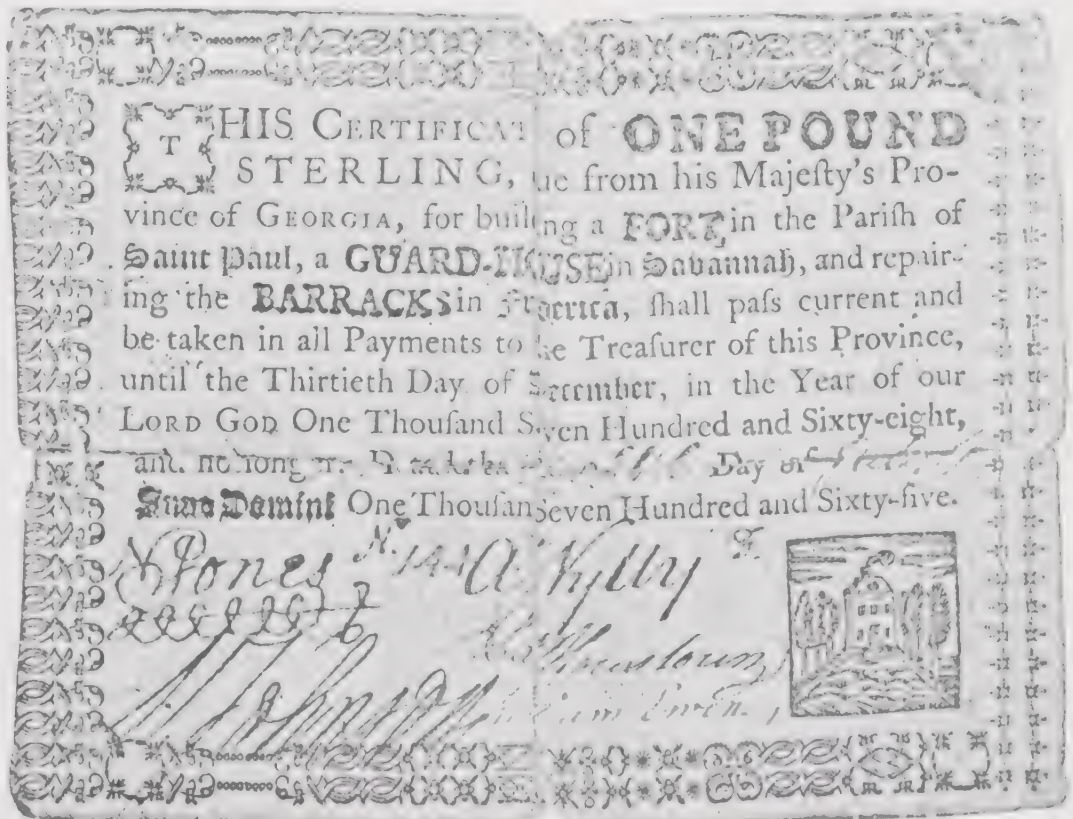 THIS CERTIFICAT of ONE POUND
STERLING, ue from his Majeſty's Pro-
vince of GEORGIA, for buil ng a FORT, in the Pariſh of
Saint Paul, a GUARD-HOUSE in Savannah, and repair-
ing the BARRACKS in F erica, ſhall paſs current and
be taken in all Payments to he Treaſurer of this Province,
until the Thirtieth Day of December, in the Year of our
LORD GOD One Thouſand Seven Hundred and Sixty-eight,
no long Day of
Anno Domini One Thouſan Seven Hundred and Sixty-five.
Jones N. 141